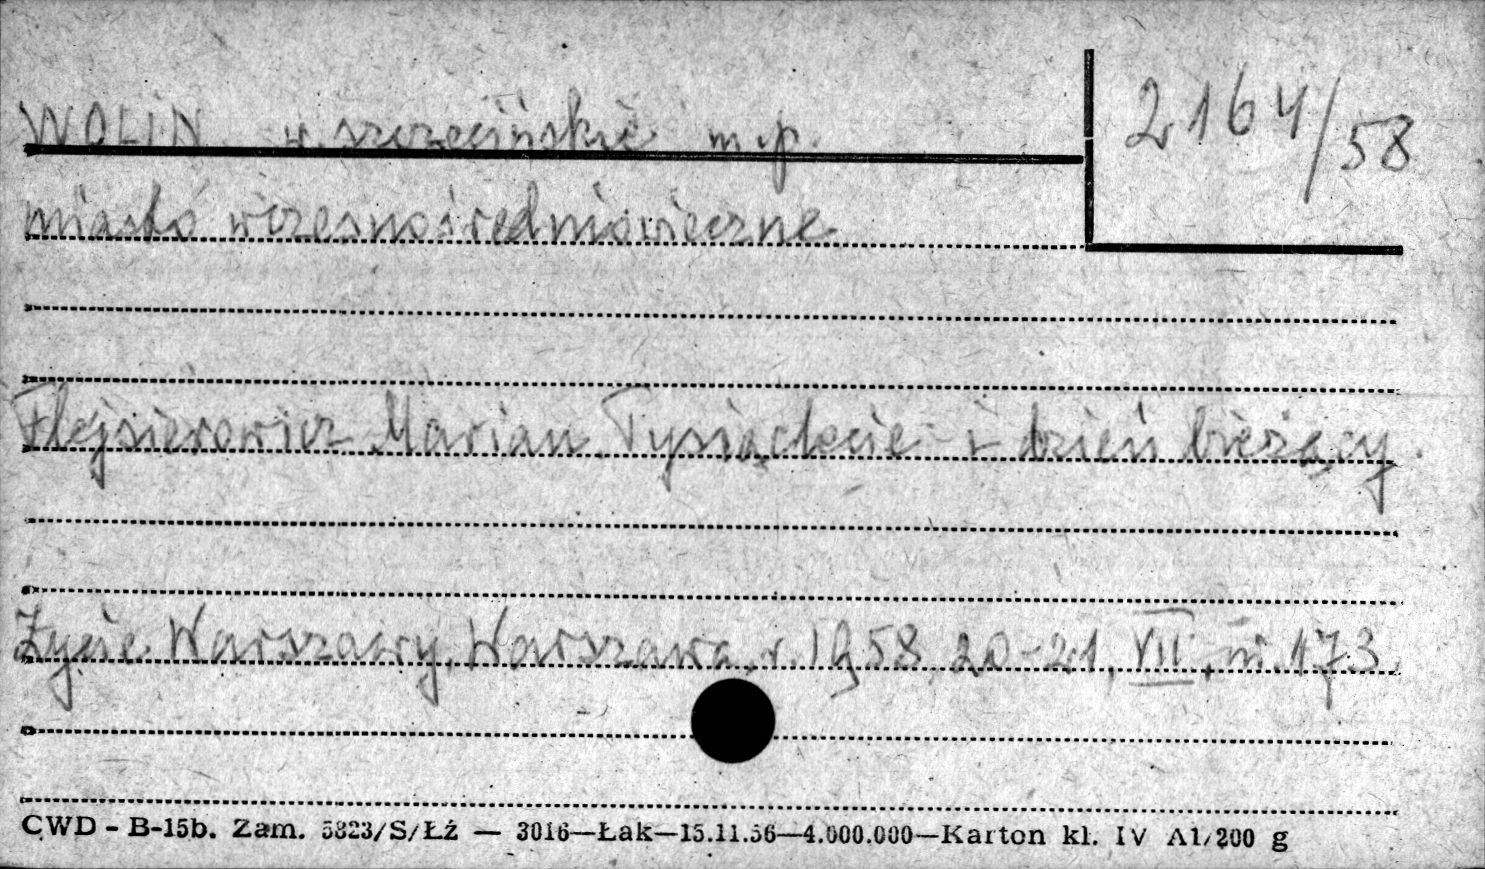 WOLIN w. szczecińskie m.p.
2164/58
miasto wczesnośredniowieczne
Flejsierowicz Marian. Tysiąclecie i dzień bieżący.
Życie Warszawy, Warszawa, r. 1958, 20-21, VII, nr. 173.
CWD - B-15b. Zam. 5823/S/Łź — 3016—Łak—15.11.56—4.000.000—Karton kl. IV A1/200 g